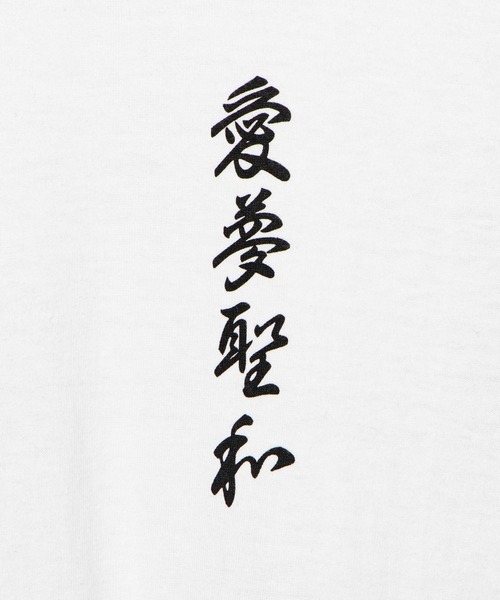 愛夢聖和